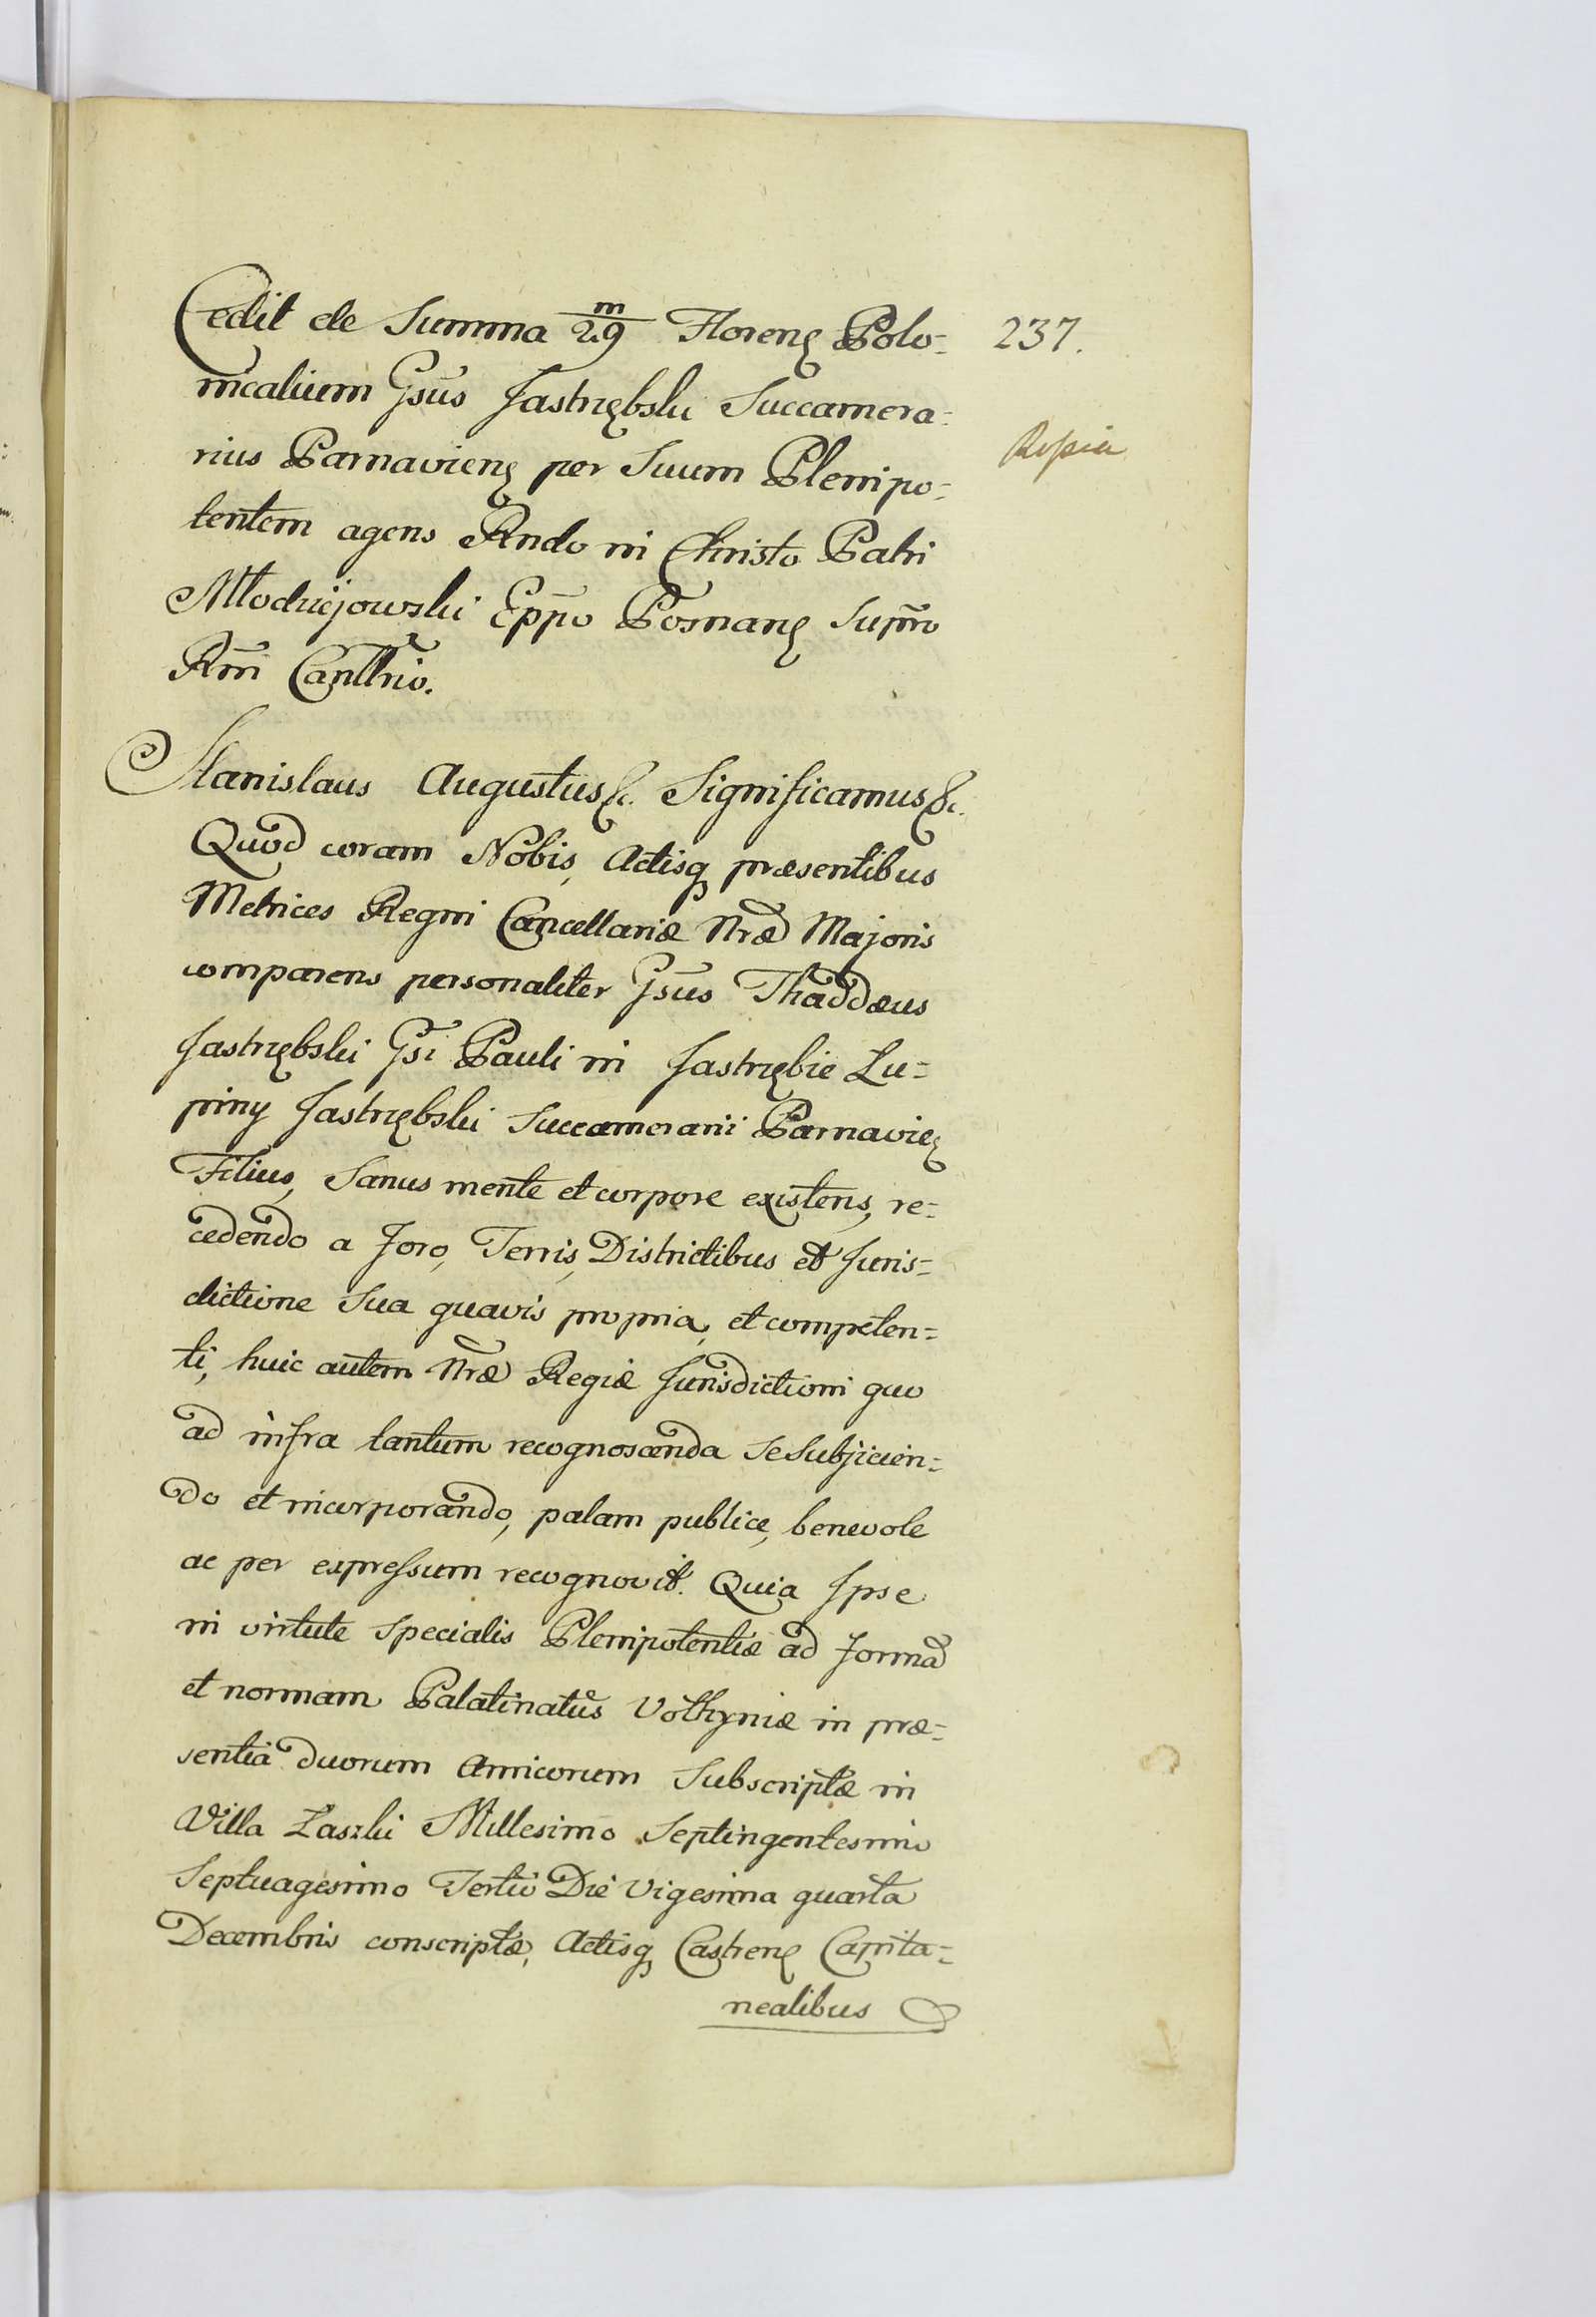 Cedit de Summa 29 m Florenꝫ Polo=
237.
nicalium Gsūs Jastrzębski Succamera=
rius Parnavienꝫ per Suum Plenipo=
tentem agens Rndo in Christo Patri
Młodziejowski Eppo Posnanꝫ Supmo
Rni Canllrio.
Stanislaus Augustus &c. Significamus &c.
Quod coram Nobis, Actisqꝫ præsentibus
Metrices Regni Cancellariæ Nræ Majoris
comparens personaliter Gsūs Thaddæus
Jastrzębski Gsi Pauli in Jastrzębie Łu=
piny Jastrzębski Succamerarii Parnavieꝫ
Filius, Sanus mente et corpore existens, re=
cedendo a Foro, Terris, Districtibus et Juris=
dictione Sua quavis propria, et competen=
ti, huic autem Nræ Regiæ Jurisdictioni quo
ad infra tantum recognoscenda se subjicien=
do et incorporando, palam publice, benevole
ac per expressum recognovit. Quia Ipse
in virtute Specialis Plenipotentiæ ad formā
et normam Palatinatûs Volhyniæ in præ=
sentia duorum Amicorum Subscriptæ in
Villa Laszki Millesimo Septingentesimo
Septuagesimo Tertio Die Vigesima quarta
Decembris conscriptæ, Actisqꝫ Castrenꝫ Capita=
nealibus